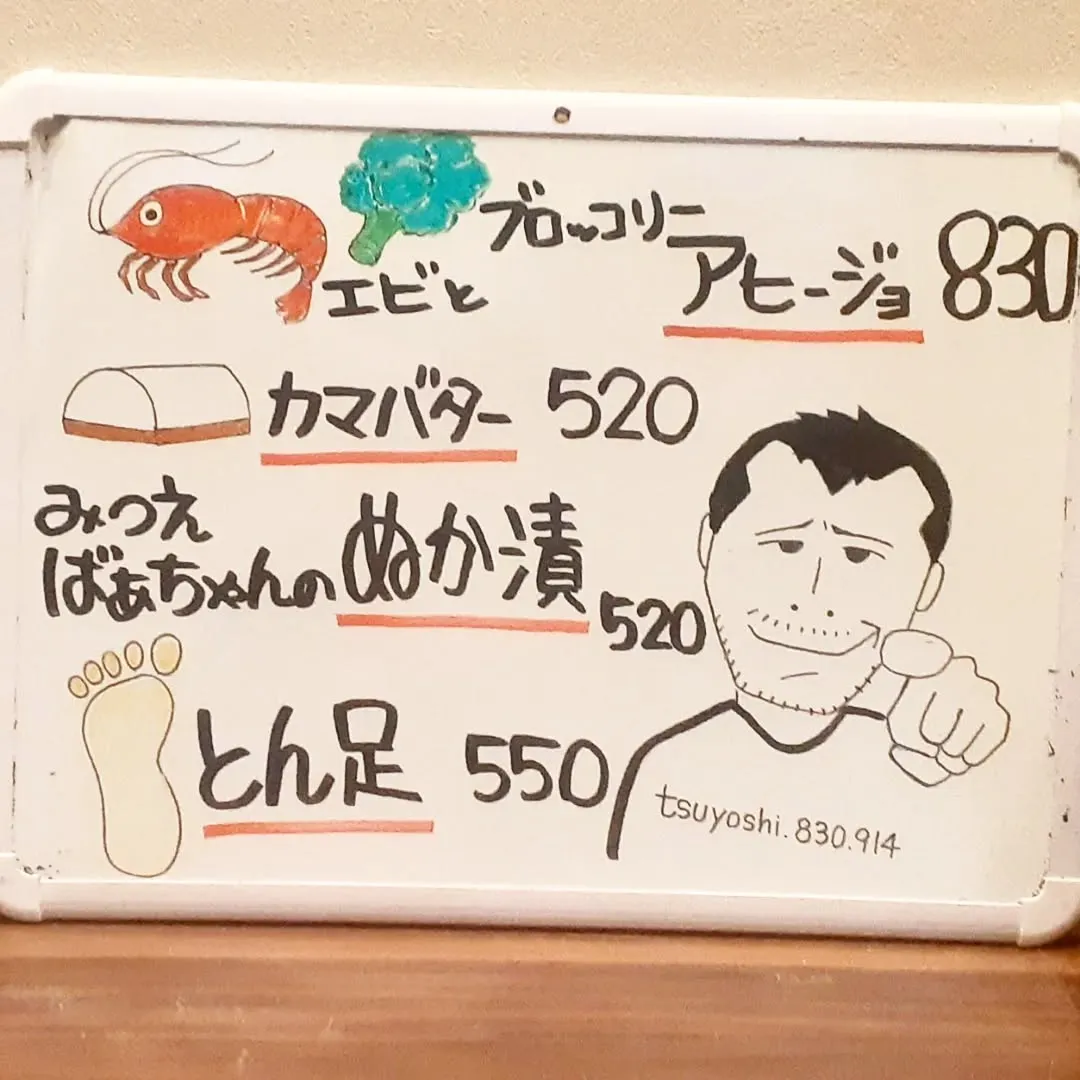 エビと ブロッコリー
アヒージョ 830
カマバター 520
みつえ
ばぁちゃんの ぬか漬 520
とん足 550
tsuyoshi.830.914